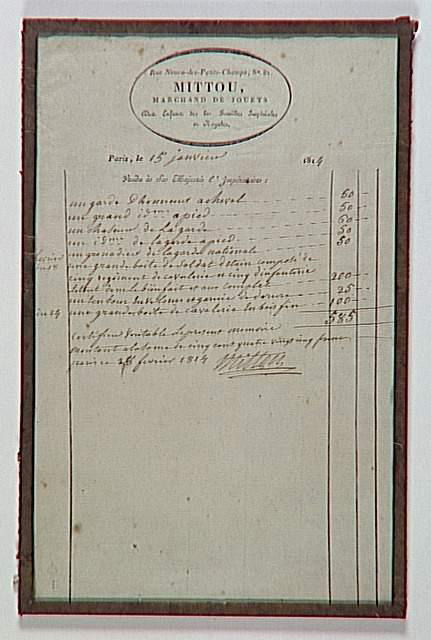 Rue Neuve-des-Petits-Champs, No. 82.
MITTOU,
MARCHAND DE JOUETS
des Enfans de les familles Impériales
et Royales,
Paris, le 15 janvier 1814
Vendu à Sa Majesté l'Impératrice:
un garde Dhonneur acheval 60
un grand idem apied 50
un chaseur de lagarde 60
un idem de lagarde apied 50
un grenadier de lagarde nationale 50
une grande boite de soldat détain composé de
cinq régiment de cavalerie et cinq dinfanterie
200
25
du 24 une grande boite de cavalerie 100
585
certifier veritable le present memoire
montant alasome de cinq cent quatre vingt cinq franc
paris ce février 1814 Mittou